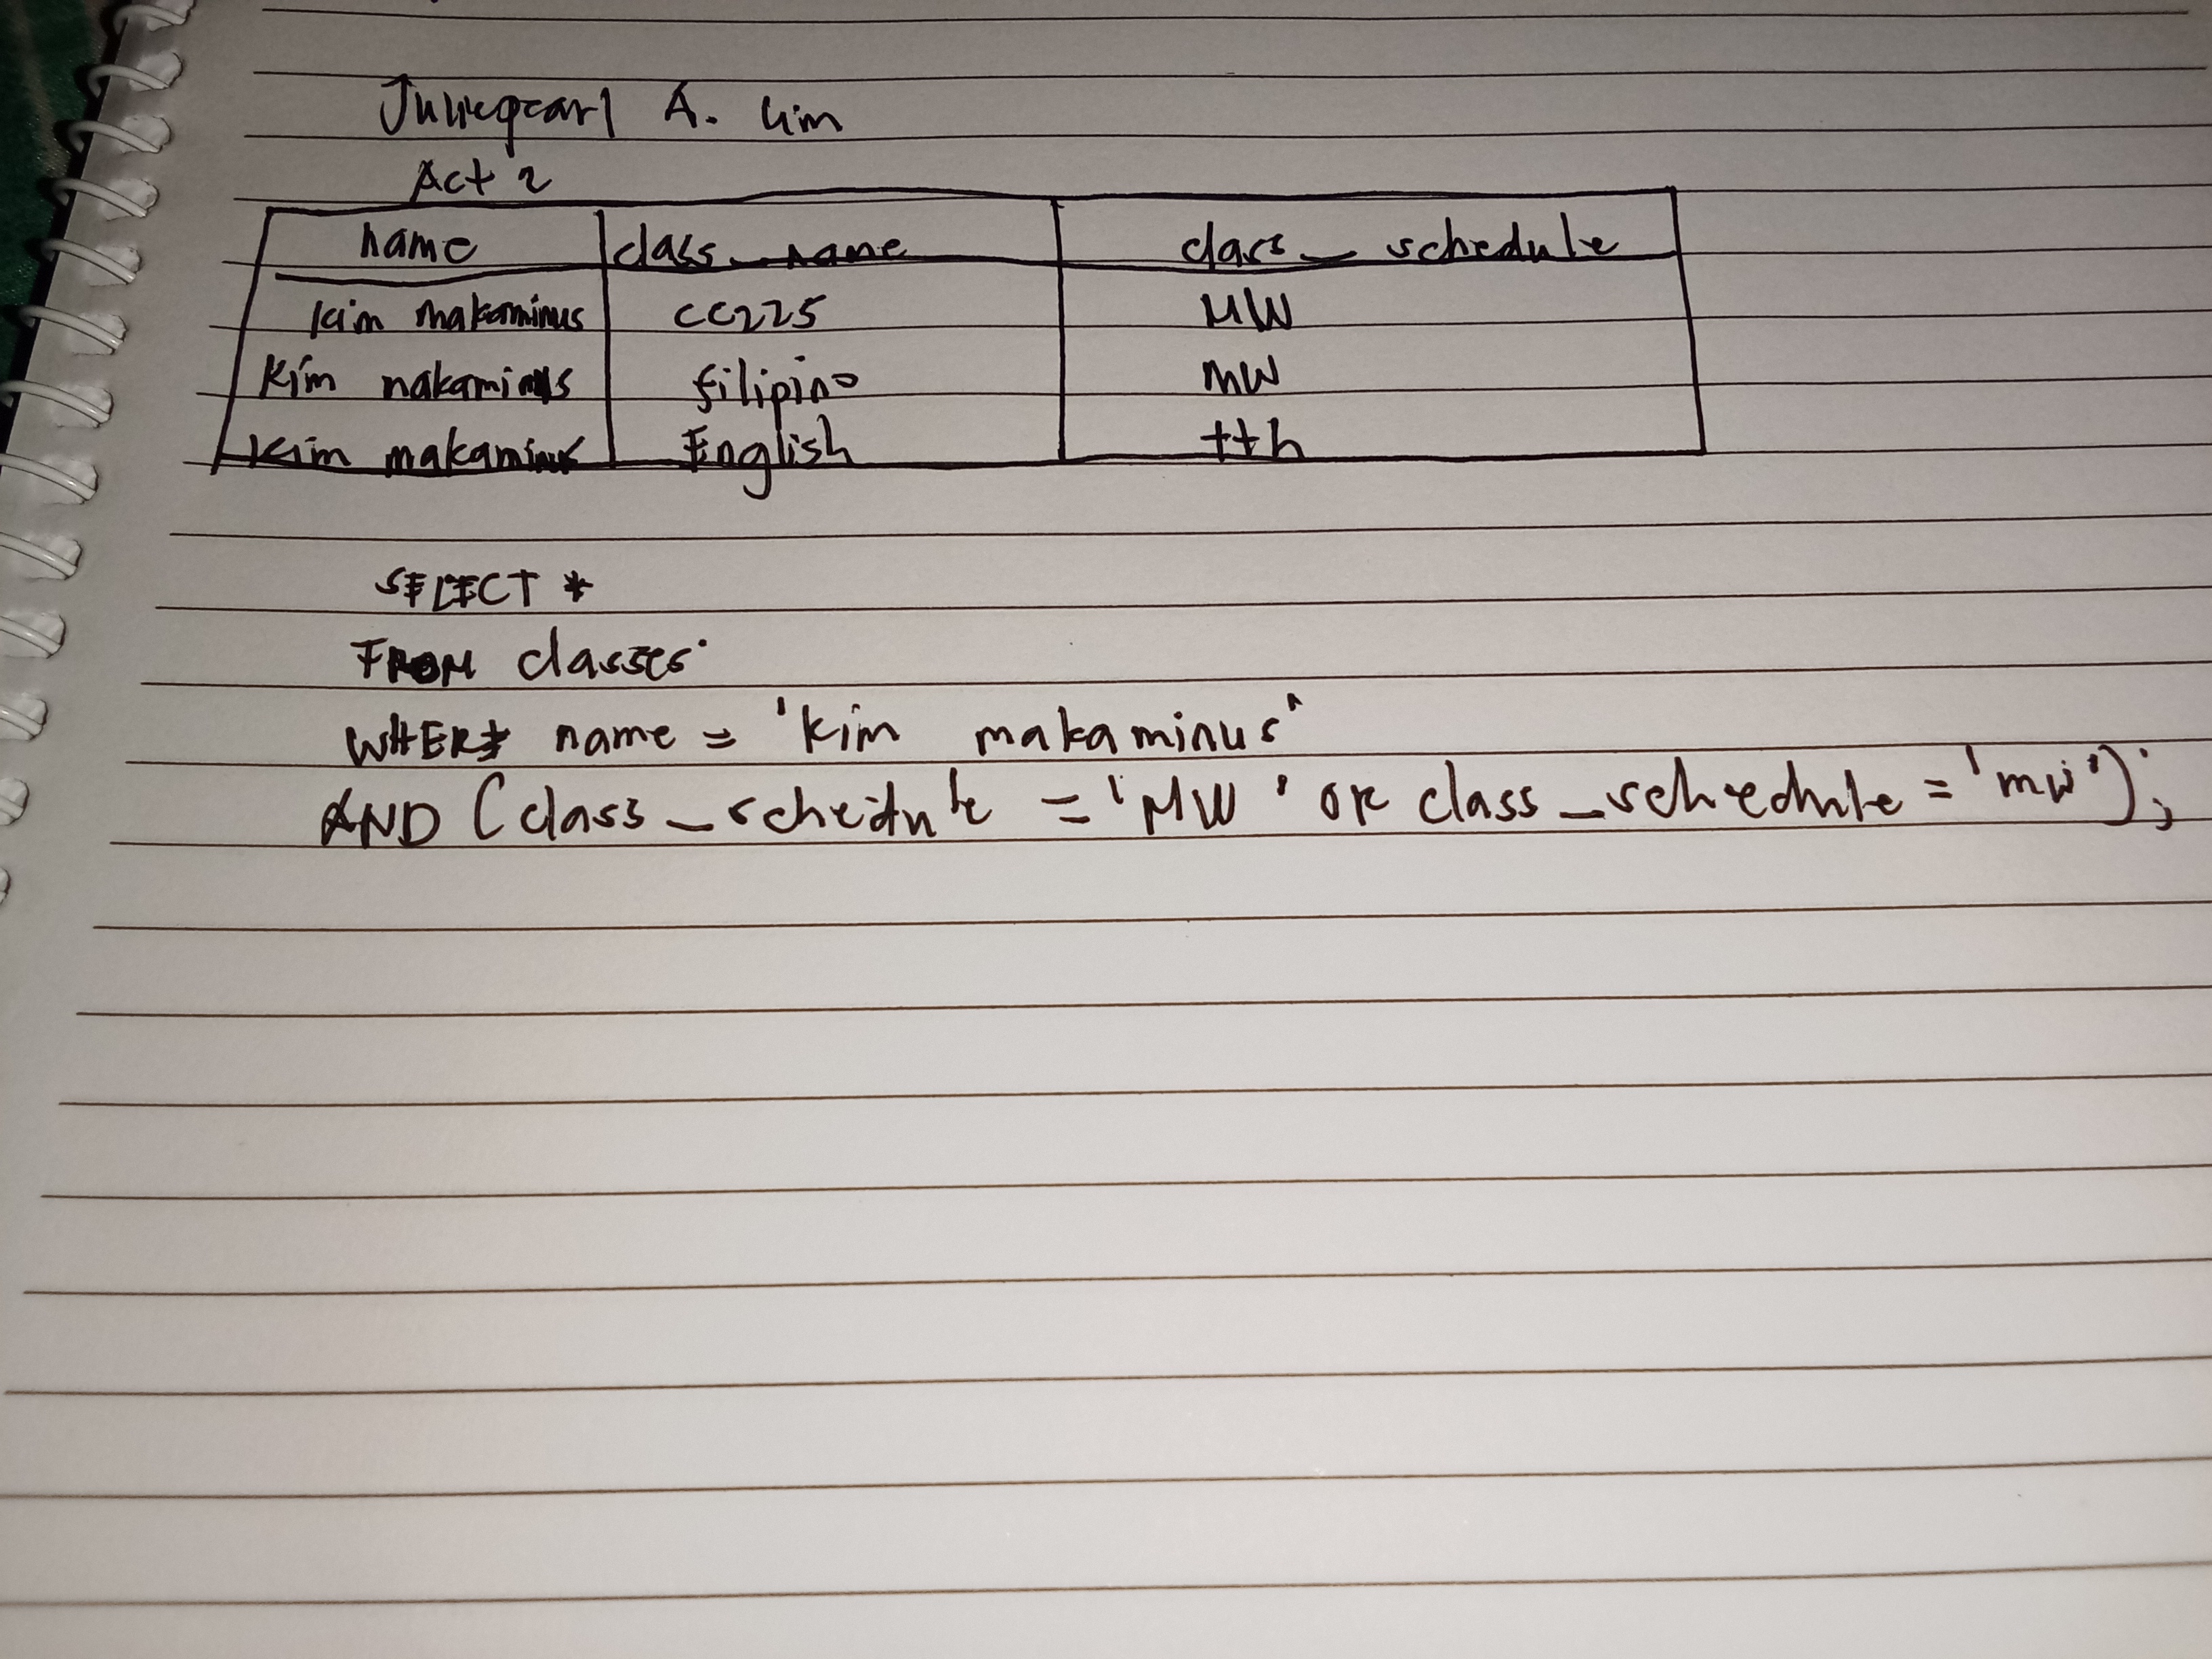 Juliepearl A. Lim
Act 2
name class_name class_schedule
kim makaminus CC225 MW
Kim nakaminus filipino mW
kim makaminus English tth
SELECT *
FROM classes
WHERE name = 'kim makaminus'
AND (class_schedule = 'MW' OR class_schedule = 'mw');